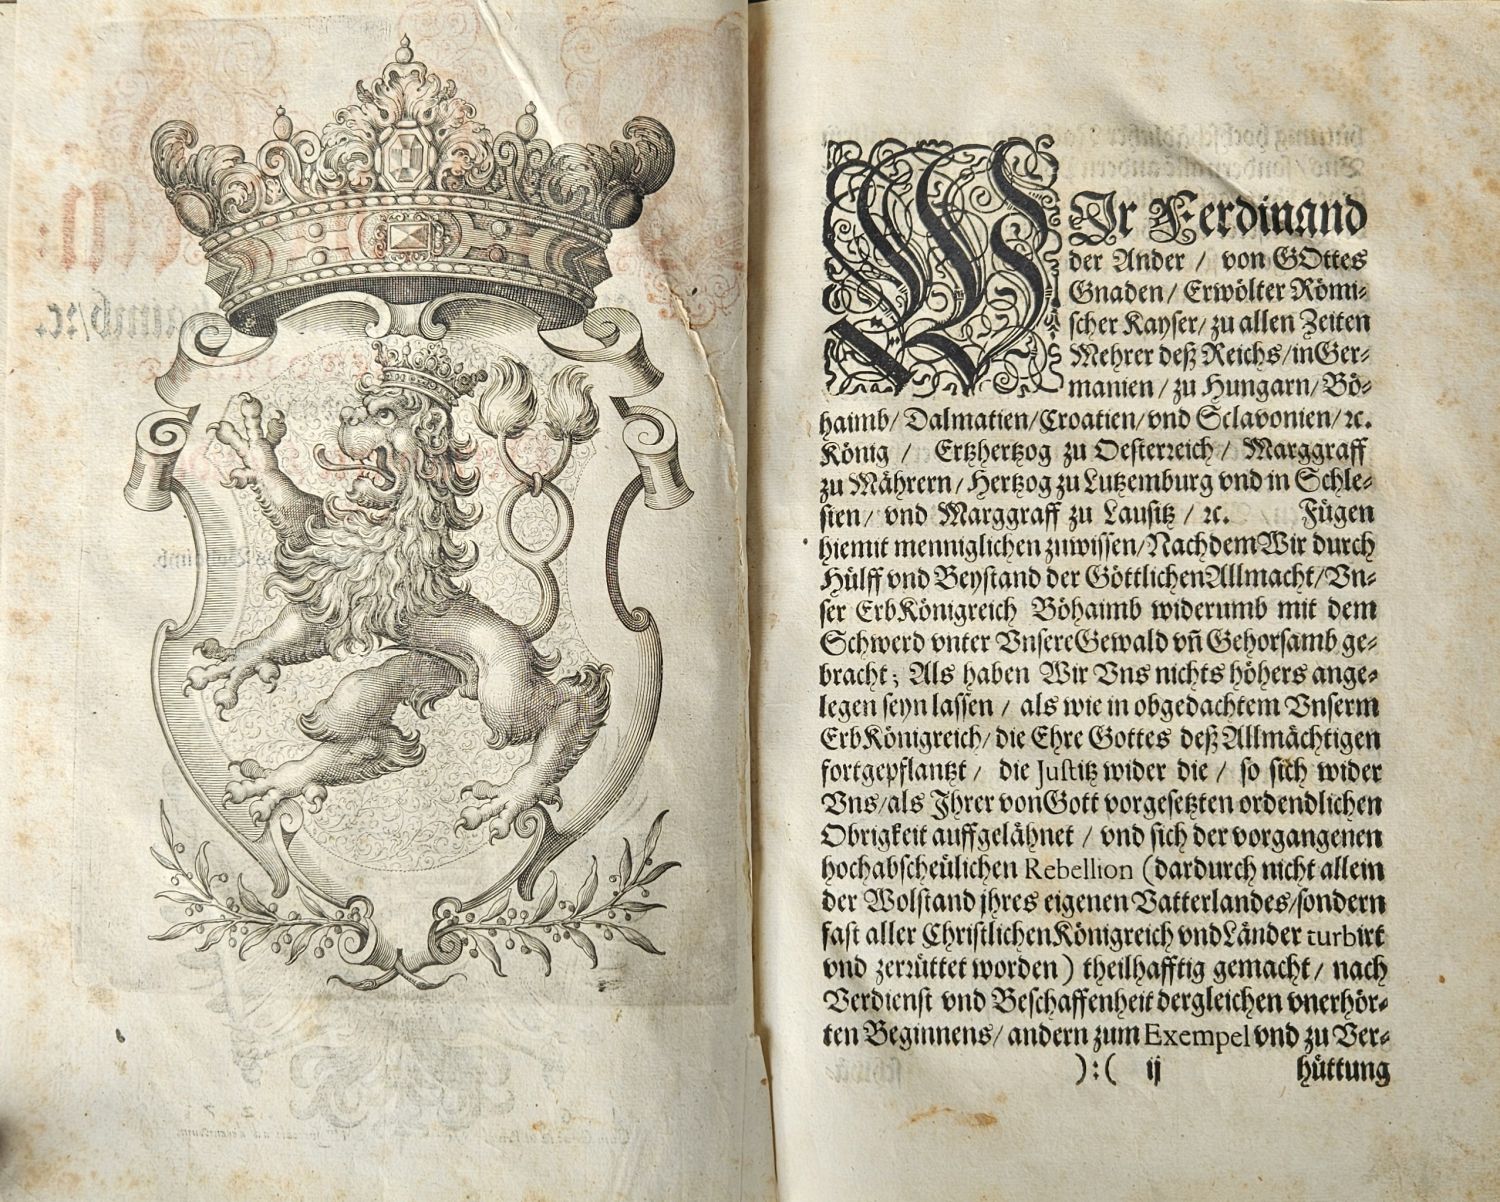 WIr Ferdinand
der Ander / von GOttes
Gnaden / Erwölter Römi-
scher Kayser / zu allen Zeiten
Mehrer deß Reichs / in Ger-
manien / zu Hungarn / Bö-
haimb / Dalmatien / Croatien / vnd Sclavonien / ꝛc.
König / Ertzhertzog zu Oesterreich / Marggraff
zu Mährern / Hertzog zu Lutzemburg vnd in Schle-
sien / vnd Marggraff zu Lausitz / ꝛc. Fügen
hiemit menniglichen zuwissen / Nachdem Wir durch
Hülff vnd Beystand der Göttlichen Allmacht / Vn-
ser ErbKönigreich Böhaimb widerumb mit dem
Schwerd vnter Vnsere Gewald vñ Gehorsamb ge-
bracht; Als haben Wir Vns nichts höhers ange-
legen seyn lassen / als wie in obgedachtem Vnserm
ErbKönigreich / die Ehre Gottes deß Allmächtigen
fortgepflantzt / die Justitz wider die / so sich wider
Vns / als Jhrer von Gott vorgesetzten ordendlichen
Obrigkeit auffgelähnet / vnd sich der vorgangenen
hochabscheülichen Rebellion (dardurch nicht allein
der Wolstand jhres eigenen Vatterlandes / sondern
fast aller Christlichen Königreich vnd Länder turbirt
vnd zerrüttet worden) theilhafftig gemacht / nach
Verdienst vnd Beschaffenheit dergleichen vnerhör-
ten Beginnens / andern zum Exempel vnd zu Ver-
):( ij hüttung